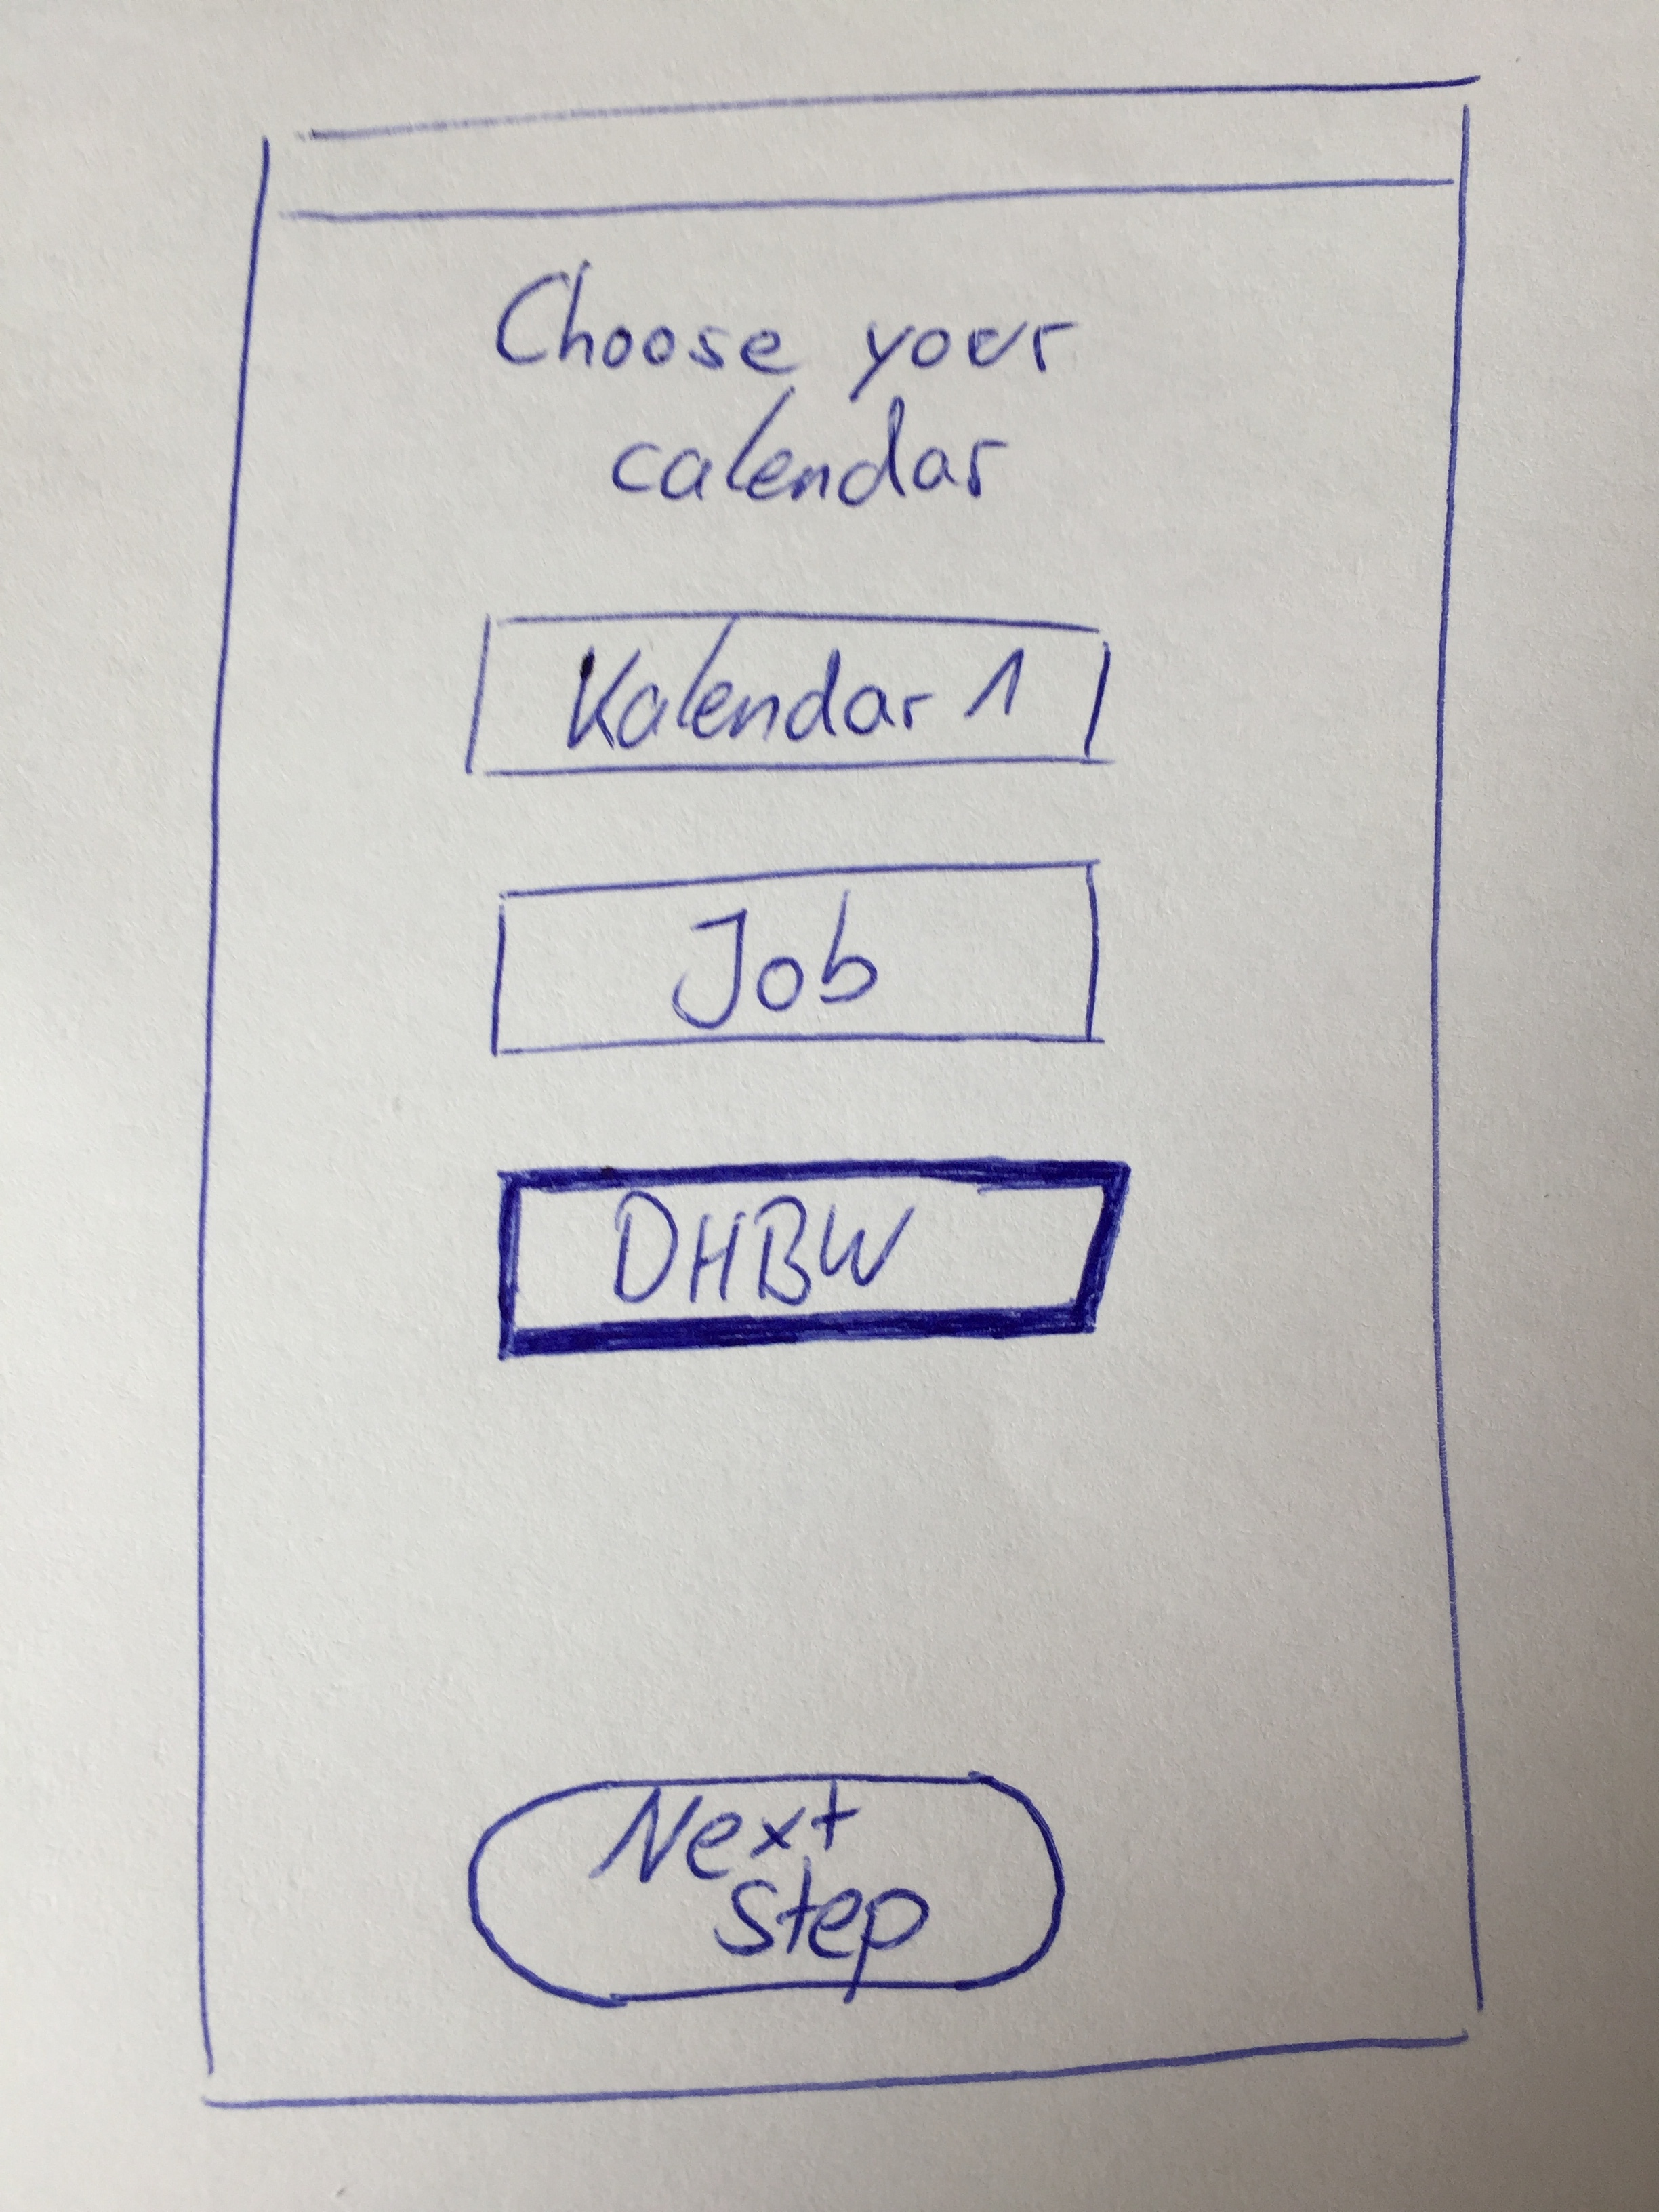 Choose your
calendar
Kalendar 1
Job
DHBW
Next
step